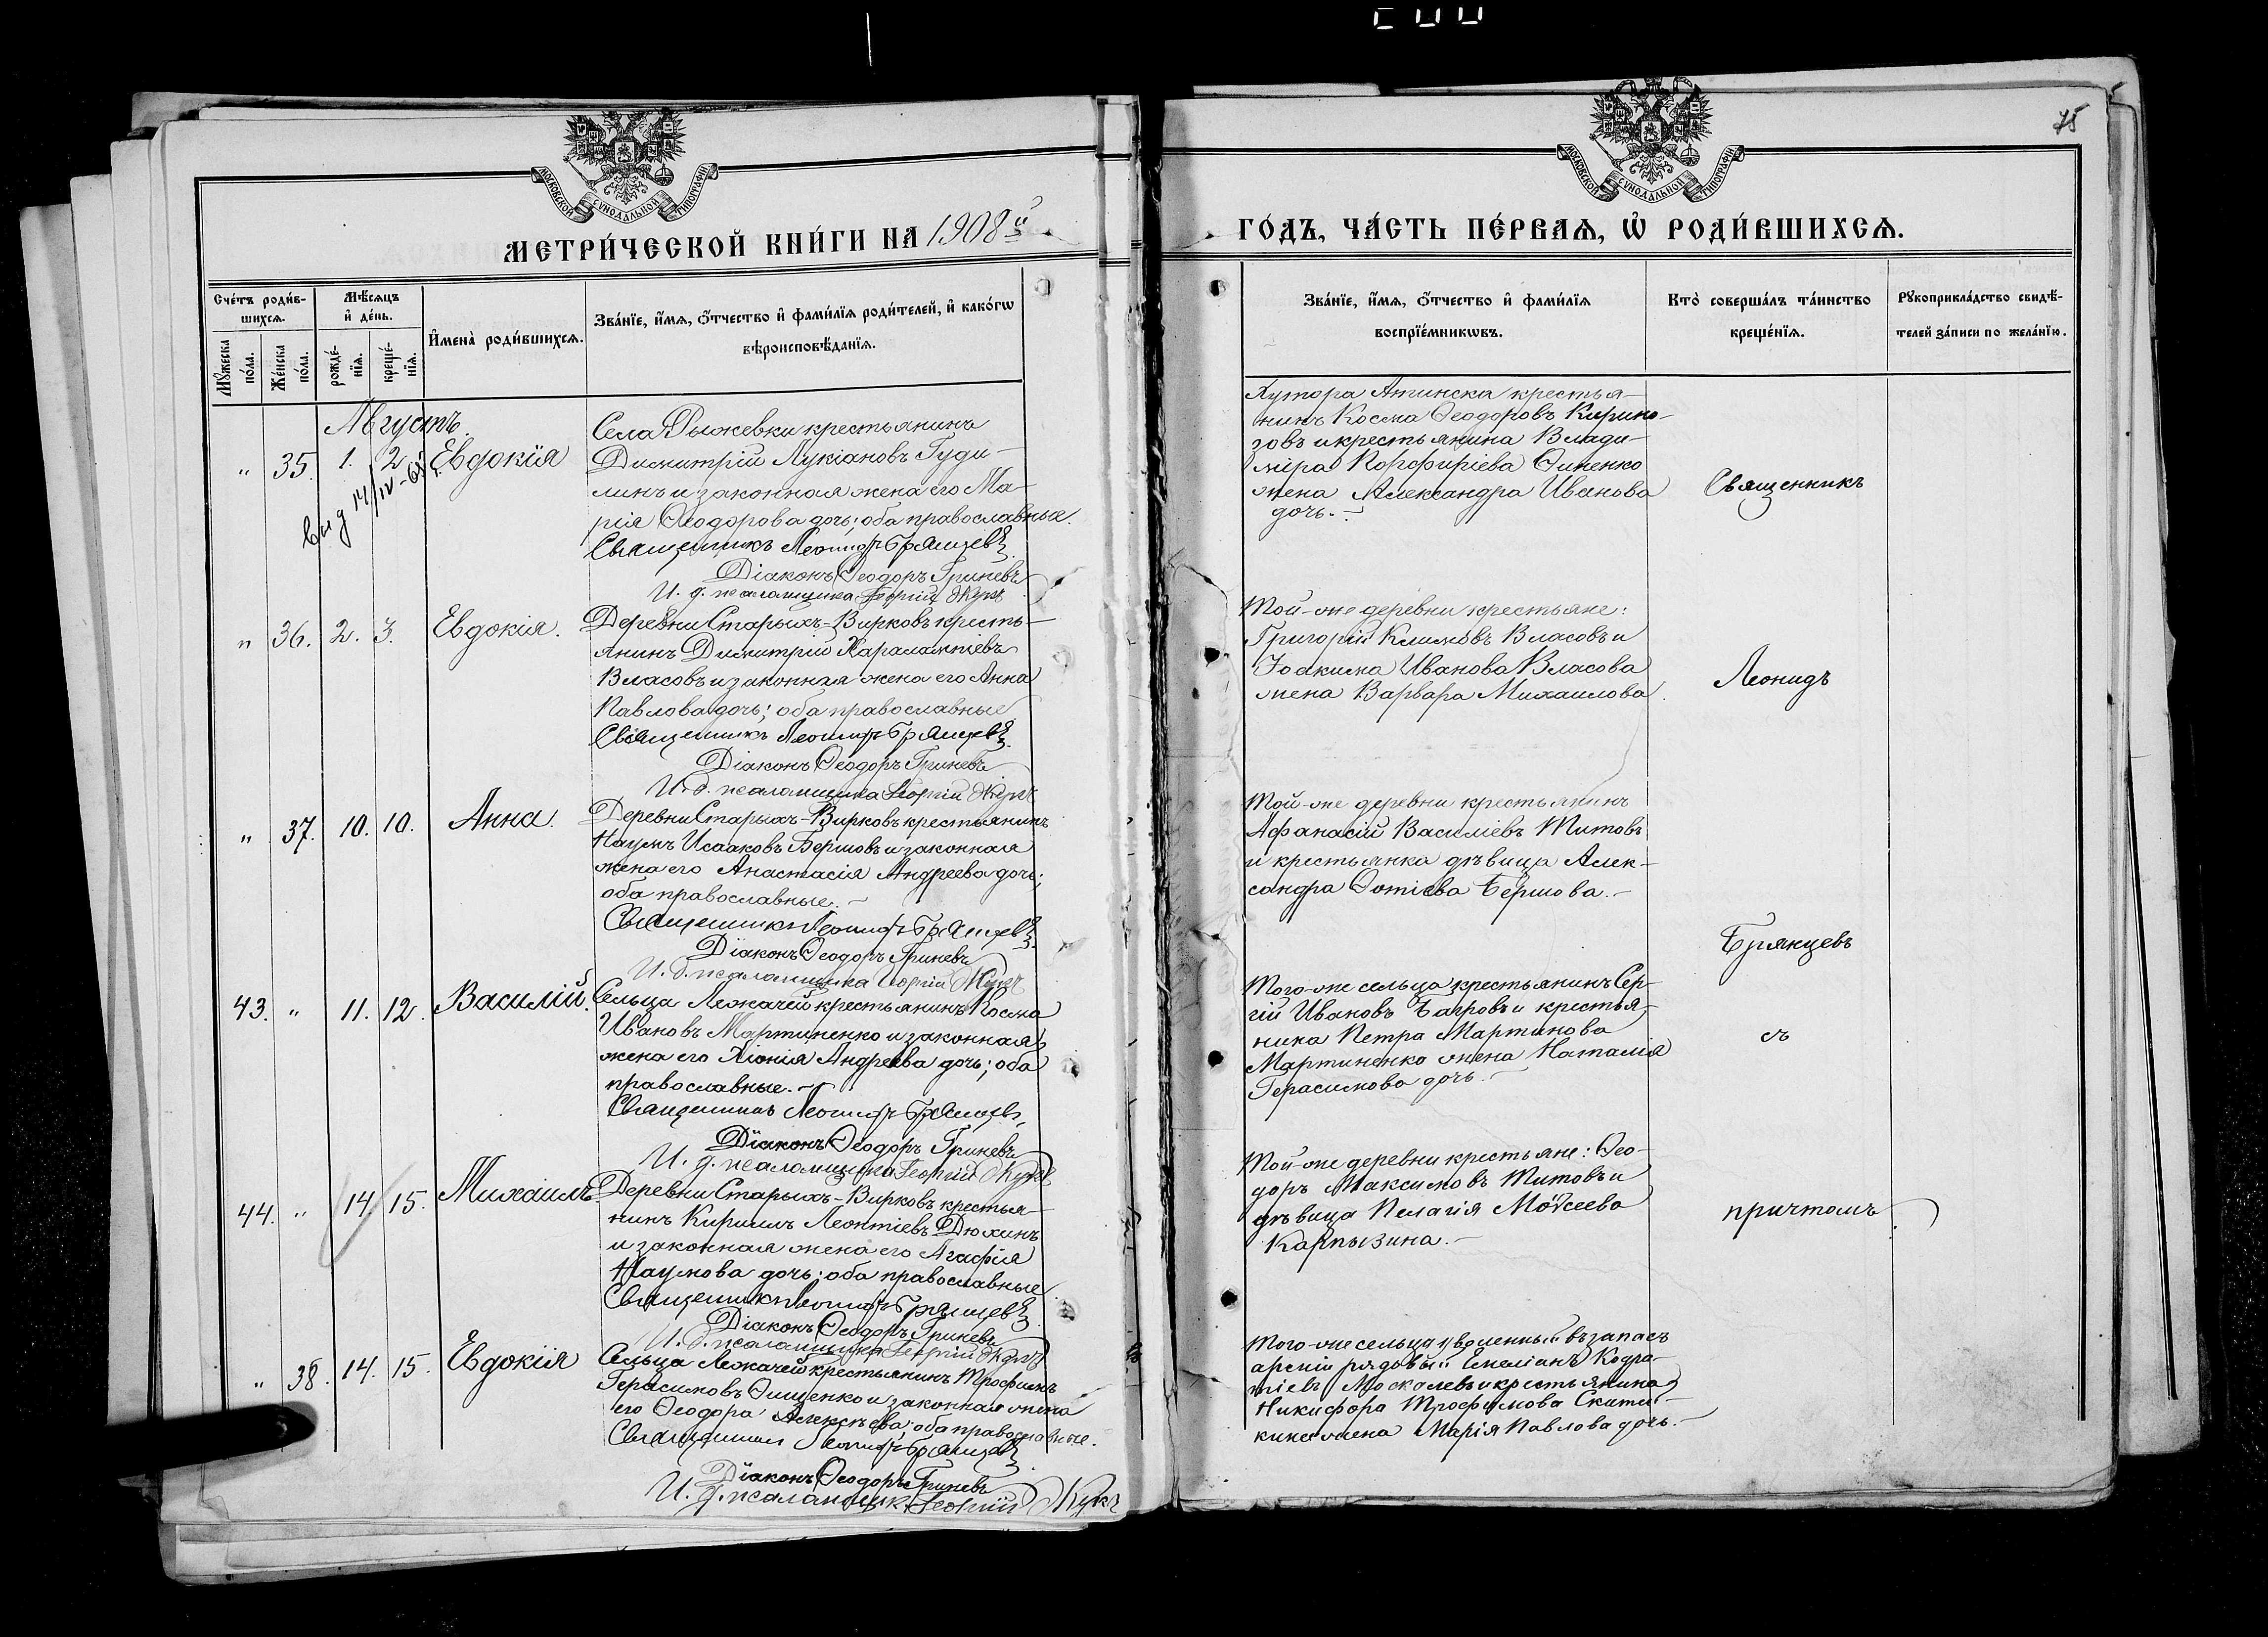 75
МОСКОВСКОЙ СѴНОДАЛЬНОЙ ТИПОГРАФІИ
МОСКОВСКОЙ СѴНОДАЛЬНОЙ ТИПОГРАФІИ
МЕТРИ́ЧЕСКОЙ КНИ́ГИ НА 1908й
ГО́ДЪ, ЧА́СТЬ ПЕ́РВАѦ, Ѡ҆ РОДИ́ВШИХСѦ.
Сче́тъ роди́в-
шихсѧ.
Мꙋ́жеска по́ла.
Же́нска по́ла.
Мѣ́сѧцъ
и҆ де́нь.
рожде́-
нїѧ.
креще́-
нїѧ.
И҆мена̀ роди́вшихсѧ.
Зва́нїе, и҆́мѧ, ѻ҆́тчество и҆ фами́лїѧ роди́телей, и҆ како́гѡ
вѣроисповѣ́данїѧ.
Зва́нїе, и҆́мѧ, ѻ҆́тчество и҆ фами́лїѧ
воспрїе́мникѡвъ.
Кто̀ соверша́лъ та́инство
креще́нїѧ.
Рꙋкоприкла́дство свидѣ́-
телей за́писи по жела́нїю.
Августъ.
" 35. 1. 2 Евдокія
Села Рыжевки крестьянинъ
Димитрій Лукіановъ Гуди-
линъ и законная жена его Ма-
рія Ѳеодорова дочь; оба православные.
Священникъ Леонидъ Брянцевъ
Діаконъ Ѳеодоръ Гриневъ
И. д. псаломщика Георгій Жукъ
Хутора Атинска крестья-
нинъ Косма Ѳеодоровъ
и крестьянина Влади-
міра Порфиріева
жена Александра Иванова
дочь.
Священникъ
" 36. 2. 3. Евдокія.
Деревни Старыхъ-Вирковъ кресть-
янинъ Димитрій Харалампіевъ
Власовъ и законная жена его Анна
Павлова дочь; оба православные
Священникъ Леонидъ Брянцевъ
Діаконъ Ѳеодоръ Гриневъ
И. д. псаломщика Георгій Жукъ
Той-же деревни крестьяне:
Григорій Климовъ Власовъ и
Іоакима Иванова Власова
жена Варвара Михаилова.
Леонидъ
" 37. 10. 10. Анна.
Деревни Старыхъ-Вирковъ крестьянинъ
Наумъ Исааковъ Бершовъ и законная
жена его Анастасія Андреева дочь;
оба православные.
Священникъ Леонидъ Брянцевъ
Діаконъ Ѳеодоръ Гриневъ
И. д. псаломщика Георгій Жукъ
Той-же деревни крестьянинъ
Афанасій Василіевъ Титовъ
и крестьянка дѣвица Алек-
сандра Фотіева Бершова.
Брянцевъ
43. " 11. 12. Василій.
Сельца Лежачей крестьянинъ Косма
Ивановъ Мартиненко и законная
жена его Хіонія Андреева дочь; оба
православные.
Священникъ Леонидъ Брянцевъ
Діаконъ Ѳеодоръ Гриневъ
И. д. псаломщика Георгій Жукъ
Того-же сельца крестьянинъ Сер-
гій Ивановъ Багровъ и крестья-
нина Петра Мартинова
Мартиненко жена Наталія
Герасимова дочь.
съ
44. " 14. 15. Михаилъ
Деревни Старыхъ-Вирковъ крестья-
нинъ Кириллъ Леонтіевъ Дюхинъ
и законная жена его Агафія
Наумова дочь; оба православные.
Священникъ Леонидъ Брянцевъ
Діаконъ Ѳеодоръ Гриневъ
И. д. псаломщика Георгій Жукъ
Той-же деревни крестьяне: Ѳео-
доръ Максимовъ Титовъ и
дѣвица Пелагія Моѵсеева
Карпызина.
причтомъ
" 38. 14. 15. Евдокія
Сельца Лежачей крестьянинъ Трофимъ
Герасимовъ Онищенко и законная жена
его Ѳеодора Алексѣева; оба православные.
Священникъ Леонидъ Брянцевъ
Діаконъ Ѳеодоръ Гриневъ
И. д. псаломщика Георгій Жукъ
Того-же сельца уволенный въ запасъ
арміи рядовый Емеліанъ Кодра-
тіевъ Москалевъ и крестьянина
Никифора Трофимова
жена Марія Павлова дочь.